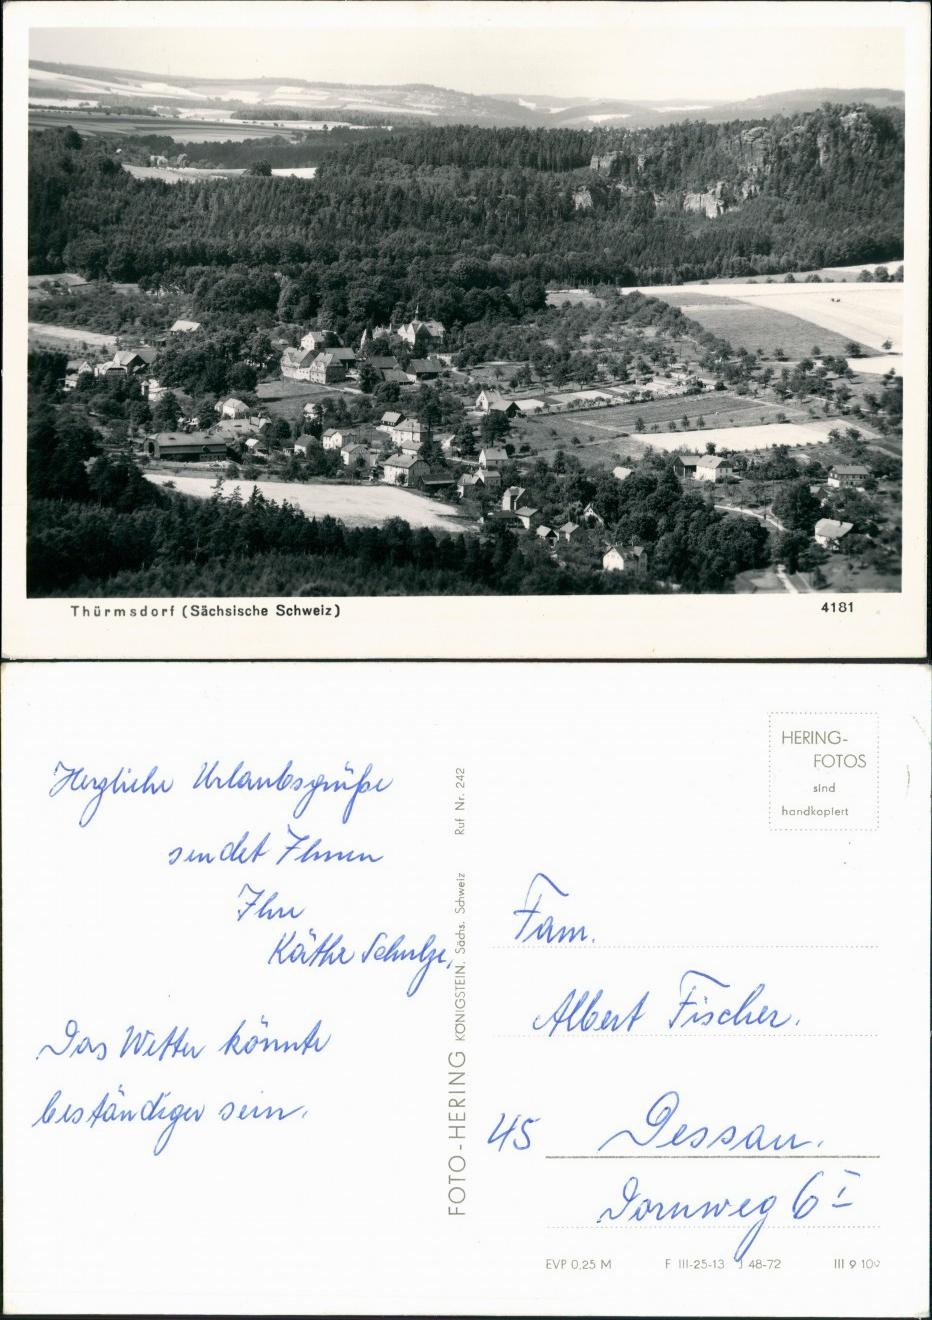 Thürmsdorf (Sächsische Schweiz)
4181
Herzliche Urlaubsgrüße
sendet Ihnen
Ihre
Käthe Schulze,
Das Wetter könnte
beständiger sein.
FOTO-HERING KÖNIGSTEIN, Sächs. Schweiz Ruf Nr. 242
HERING-
FOTOS
sind
handkopiert
Fam.
Albert Fischer.
45 Dessau.
Dornweg 6 I
EVP 0,25 M F III-25-13 J 48-72 III 9 109